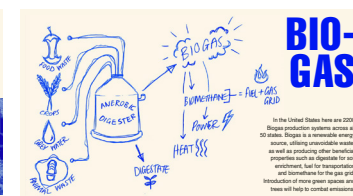 FOOD WASTE
CROPS
GREY WATER
ANIMAL WASTE
ANEROBIC
DIGESTER
DIGESTATE
BIOGAS
BIOMETHANE
= FUEL + GAS
GRID
POWER
HEAT
BIO-
GAS
In the United States here are 2200
Biogas production systems across all
50 states. Biogas is a renewable energy
source, utilising unavoidable waste
as well as producing other beneficial
properties such as digestate for soil
enrichment, fuel for transportation
and biomethane for the gas grid.
Introduction of more green spaces and
trees will help to combat emissions